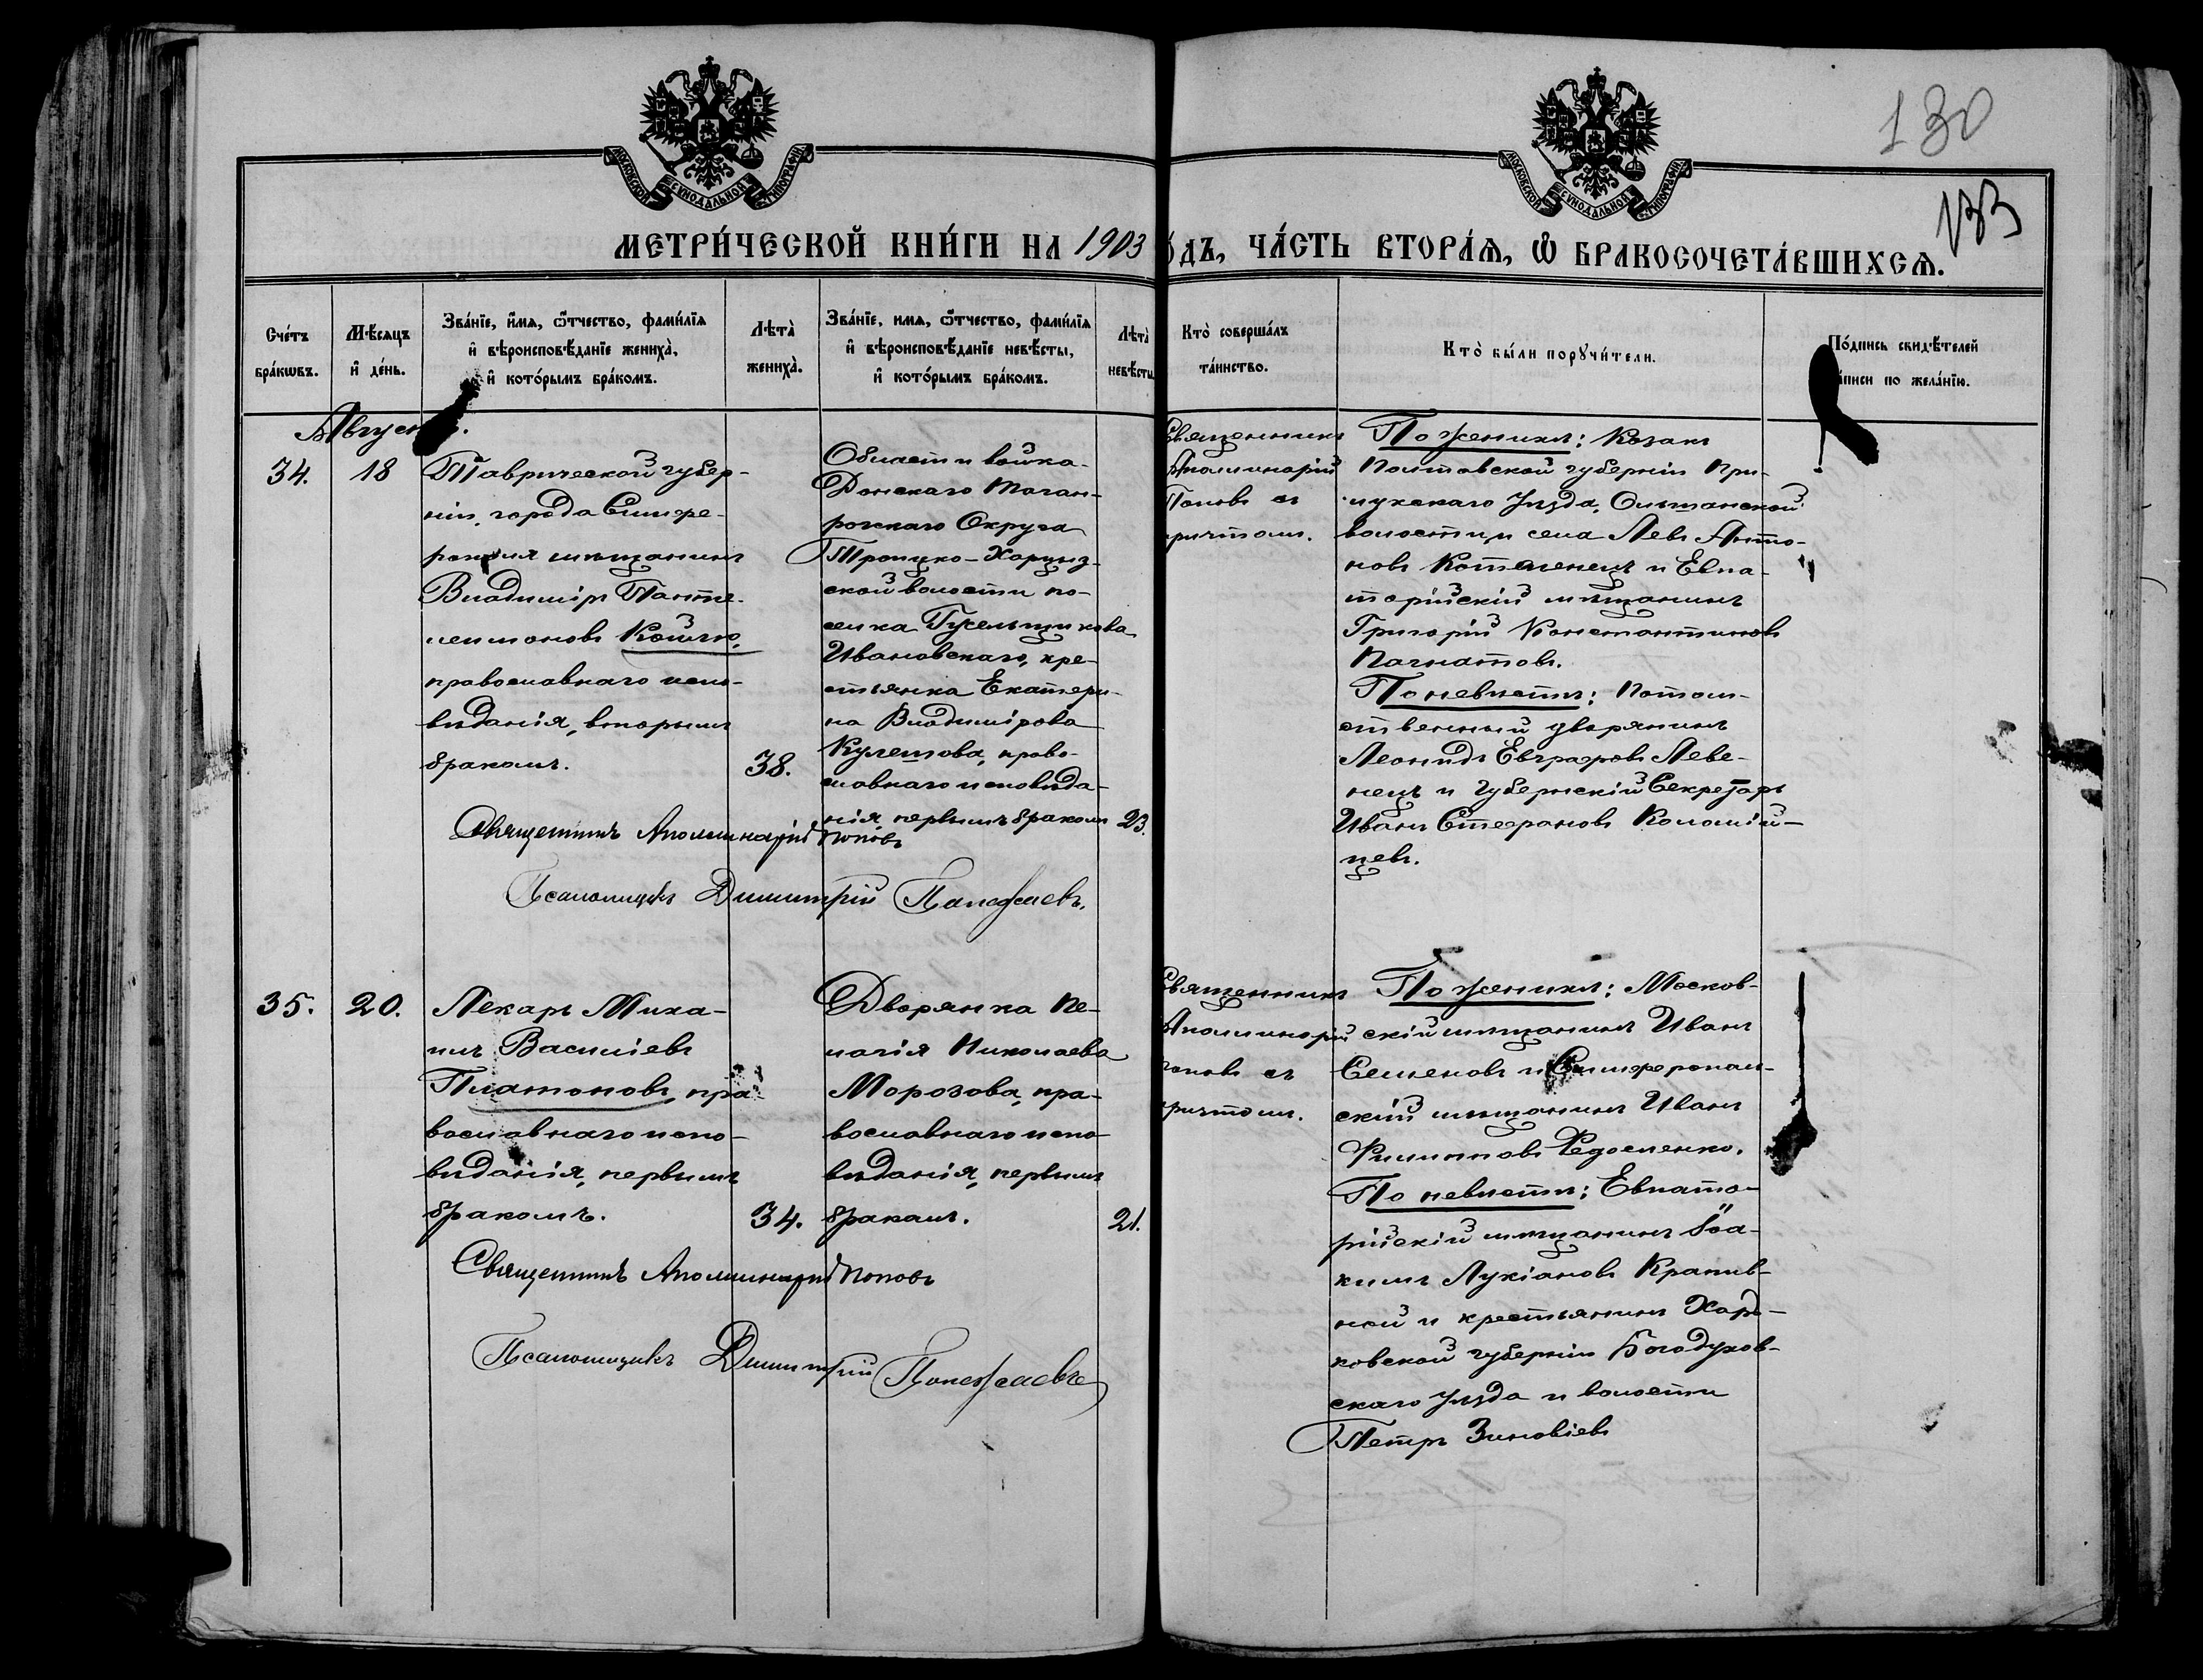 130
133
МОСКОВСКОЙ СѴНОДАЛЬНОЙ ТИПОГРАФІИ
МОСКОВСКОЙ СѴНОДАЛЬНОЙ ТИПОГРАФІИ
МЕТРИ́ЧЕСКОЙ КНИ́ГИ НА 1903 О́ДЪ, ЧА́СТЬ ВТОРА́Ѧ, Ѿ БРАКОСОЧЕТА́ВШИХСѦ.
Сче́тъ
бра́кωвъ.
Мѣ́сяцъ
и҆ де́нь.
Зва́нїе, и҆́мѧ, ѻ҆́тчество, фами́лїѧ
и҆ вѣроисповѣ́данїе жениха̀,
и҆ кото́рымъ бра́комъ.
Лѣта̀
жениха̀.
Зва́нїе, имѧ, ѻ҆́тчество, фами́лїѧ
и҆ вѣроисповѣ́данїе невѣ́сты,
и҆ кото́рымъ бра́комъ.
Лѣта̀
невѣ́сты
Кто̀ соверша́лъ
та́инство.
Кто̀ бы́ли порꙋчи́тели.
По́дпись свидѣ́телей
а́писи по жела́нїю.
34.
18
Таврической губер-
ніи, города Симфе-
рополя мѣщанинъ
Владиміръ Панте-
леимоновъ
православнаго испо-
вѣданія, вторымъ
бракомъ.
38.
Области войска
Донскаго Таган-
рогскаго Округа
Троицко-Харциз-
ской волости по-
селка Гусельщикова
Ивановскаго, кре-
стьянка Екатери-
на Владимірова
Кулешова, право-
славнаго исповѣда-
нія первымъ бракомъ
23.
Священникъ
Аполлинарій
Поповъ съ
причтомъ.
По женихѣ: Козакъ
Полтавской губерніи При-
лукскаго уѣзда, Ольшанской
волости, и села Левъ Анто-
новъ Котеленецъ и Евпа-
торійскій мѣщанинъ
Григорій Константиновъ
Пачнатовъ.
По невѣстѣ: Потом-
ственный дворянинъ
Леонидъ Евграфовъ Леве-
нецъ и Губернскій Секретарь
Иванъ Стефановъ Коломій-
цевъ.
Священникъ Аполлинарій Поповъ
Псаломщикъ Димитрій
35.
20.
Лекарь Миха-
илъ Василіевъ
Платоновъ, пра-
вославнаго испо-
вѣданія, первымъ
бракомъ.
34.
Дворянка Пе-
лагія Николаева
Морозова, пра-
вославнаго испо-
вѣданія, первымъ
бракомъ.
21.
Священникъ
Аполлинарій
Поповъ съ
причтомъ.
По женихѣ: Москов-
скій мѣщанинъ Иванъ
Семеновъ и Симферополь-
скій мѣщанинъ Иванъ
Филипповъ Федосенко.
По невѣстѣ: Евпато-
рійскій мѣщанинъ Іоа-
кимъ Лукіановъ Крапив-
ной и крестьянинъ Харь-
ковской губерніи Богодухов-
скаго уѣзда и волости
Петръ Зиновіевъ
Священникъ Аполлинарій Поповъ
Псаломщикъ Димитрій